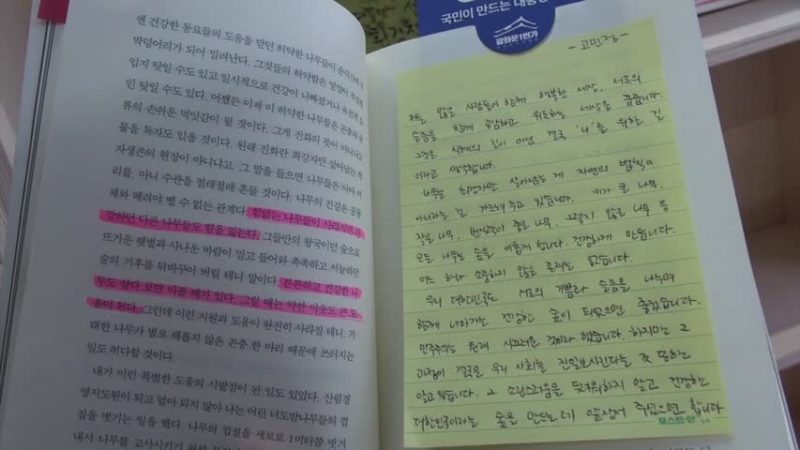 엔 건강한 동료들의 도움을 받던 허약한 나무들이 순식간에
박덩어리가 되어 밀려난다. 그것들의 허약함은 영양이
입지 탓일 수도 있고 일시적으로 건강이 나빠졌거나 유전적
인 탓일 수도 있다. 어쨌든 이제 이 허약한 나무들은 곤충과
류의 손쉬운 먹잇감이 될 것이다. 그게 진화의 뜻이 아니냐고
물을 독자도 있을 것이다. 원래 진화란 최강자만 살아남는 적
자생존의 현장이 아니냐고. 그 말을 들으면 나무들은 아마 머
리를, 아니 수관을 절레절레 흔들 것이다. 나무의 건강은 공동
체와 떼려야 뗄 수 없는 관계다. 힘없는 나무들이 사라지면 건
강하던 다른 나무들도 힘을 잃는다. 그들만의 왕국이던 숲으로
뜨거운 햇볕과 사나운 바람이 밀고 들어와 촉촉하고 서늘하던
숲의 기후를 뒤바꾸어 버릴 테니 말이다. 튼튼하고 건강한 나
무도 살다 보면 아플 때가 있다. 그럴 때는 약한 이웃도 큰 도
움이 된다. 그런데 이런 지원과 도움이 완전히 사라질 테니, 거
대한 나무가 별로 해롭지 않은 곤충 한 마리 때문에 쓰러지는
일도 허다할 것이다.
내가 이런 특별한 도움의 시발점이 된 일도 있었다. 산림경
영지도원이 되고 얼마 되지 않아 나는 어린 너도밤나무들의 껍
질을 벗기는 일을 했다. 나무의 껍질을 세로로 1미터쯤 벗겨
내서 나무를 고사시키기 위한
국민이 만드는 대통령
광화문1번가
- 고민정 -
많은 사람들이 함께 행복한 세상, 서로의
슬픔을 함께 공감하고 위로하는 세상을 꿈꿉니다.
그것은 시혜의 길이 아닌 결국 '나'를 위한 길
이라고 생각합니다.
나무는 최강자만 살아남는 게 자연의 법칙이
아니라는 걸 가르쳐주고 있습니다. 키가 큰 나무,
작은 나무, 좋은 나무, 그렇지 않은 나무 등
모든 나무는 숲을 이롭게 합니다. 건강하게 만듭니다.
어느 하나 소중하지 않을 존재는 없습니다.
우리 대한민국도 서로의 기쁨과 슬픔을 나누며
함께 나아가는 건강한 숲이 되었으면 좋겠습니다.
민주주의는 원래 시끄러운 것이라 했습니다. 하지만 그
과정이 결국은 우리 사회를 진일보시킨다는 것 또한
알고 있습니다. 그 소란스러움을 두려워하지 않고 건강한
대한민국이라는 숲을 만드는 데 앞장서 주셨으면 합니다
포스트잇